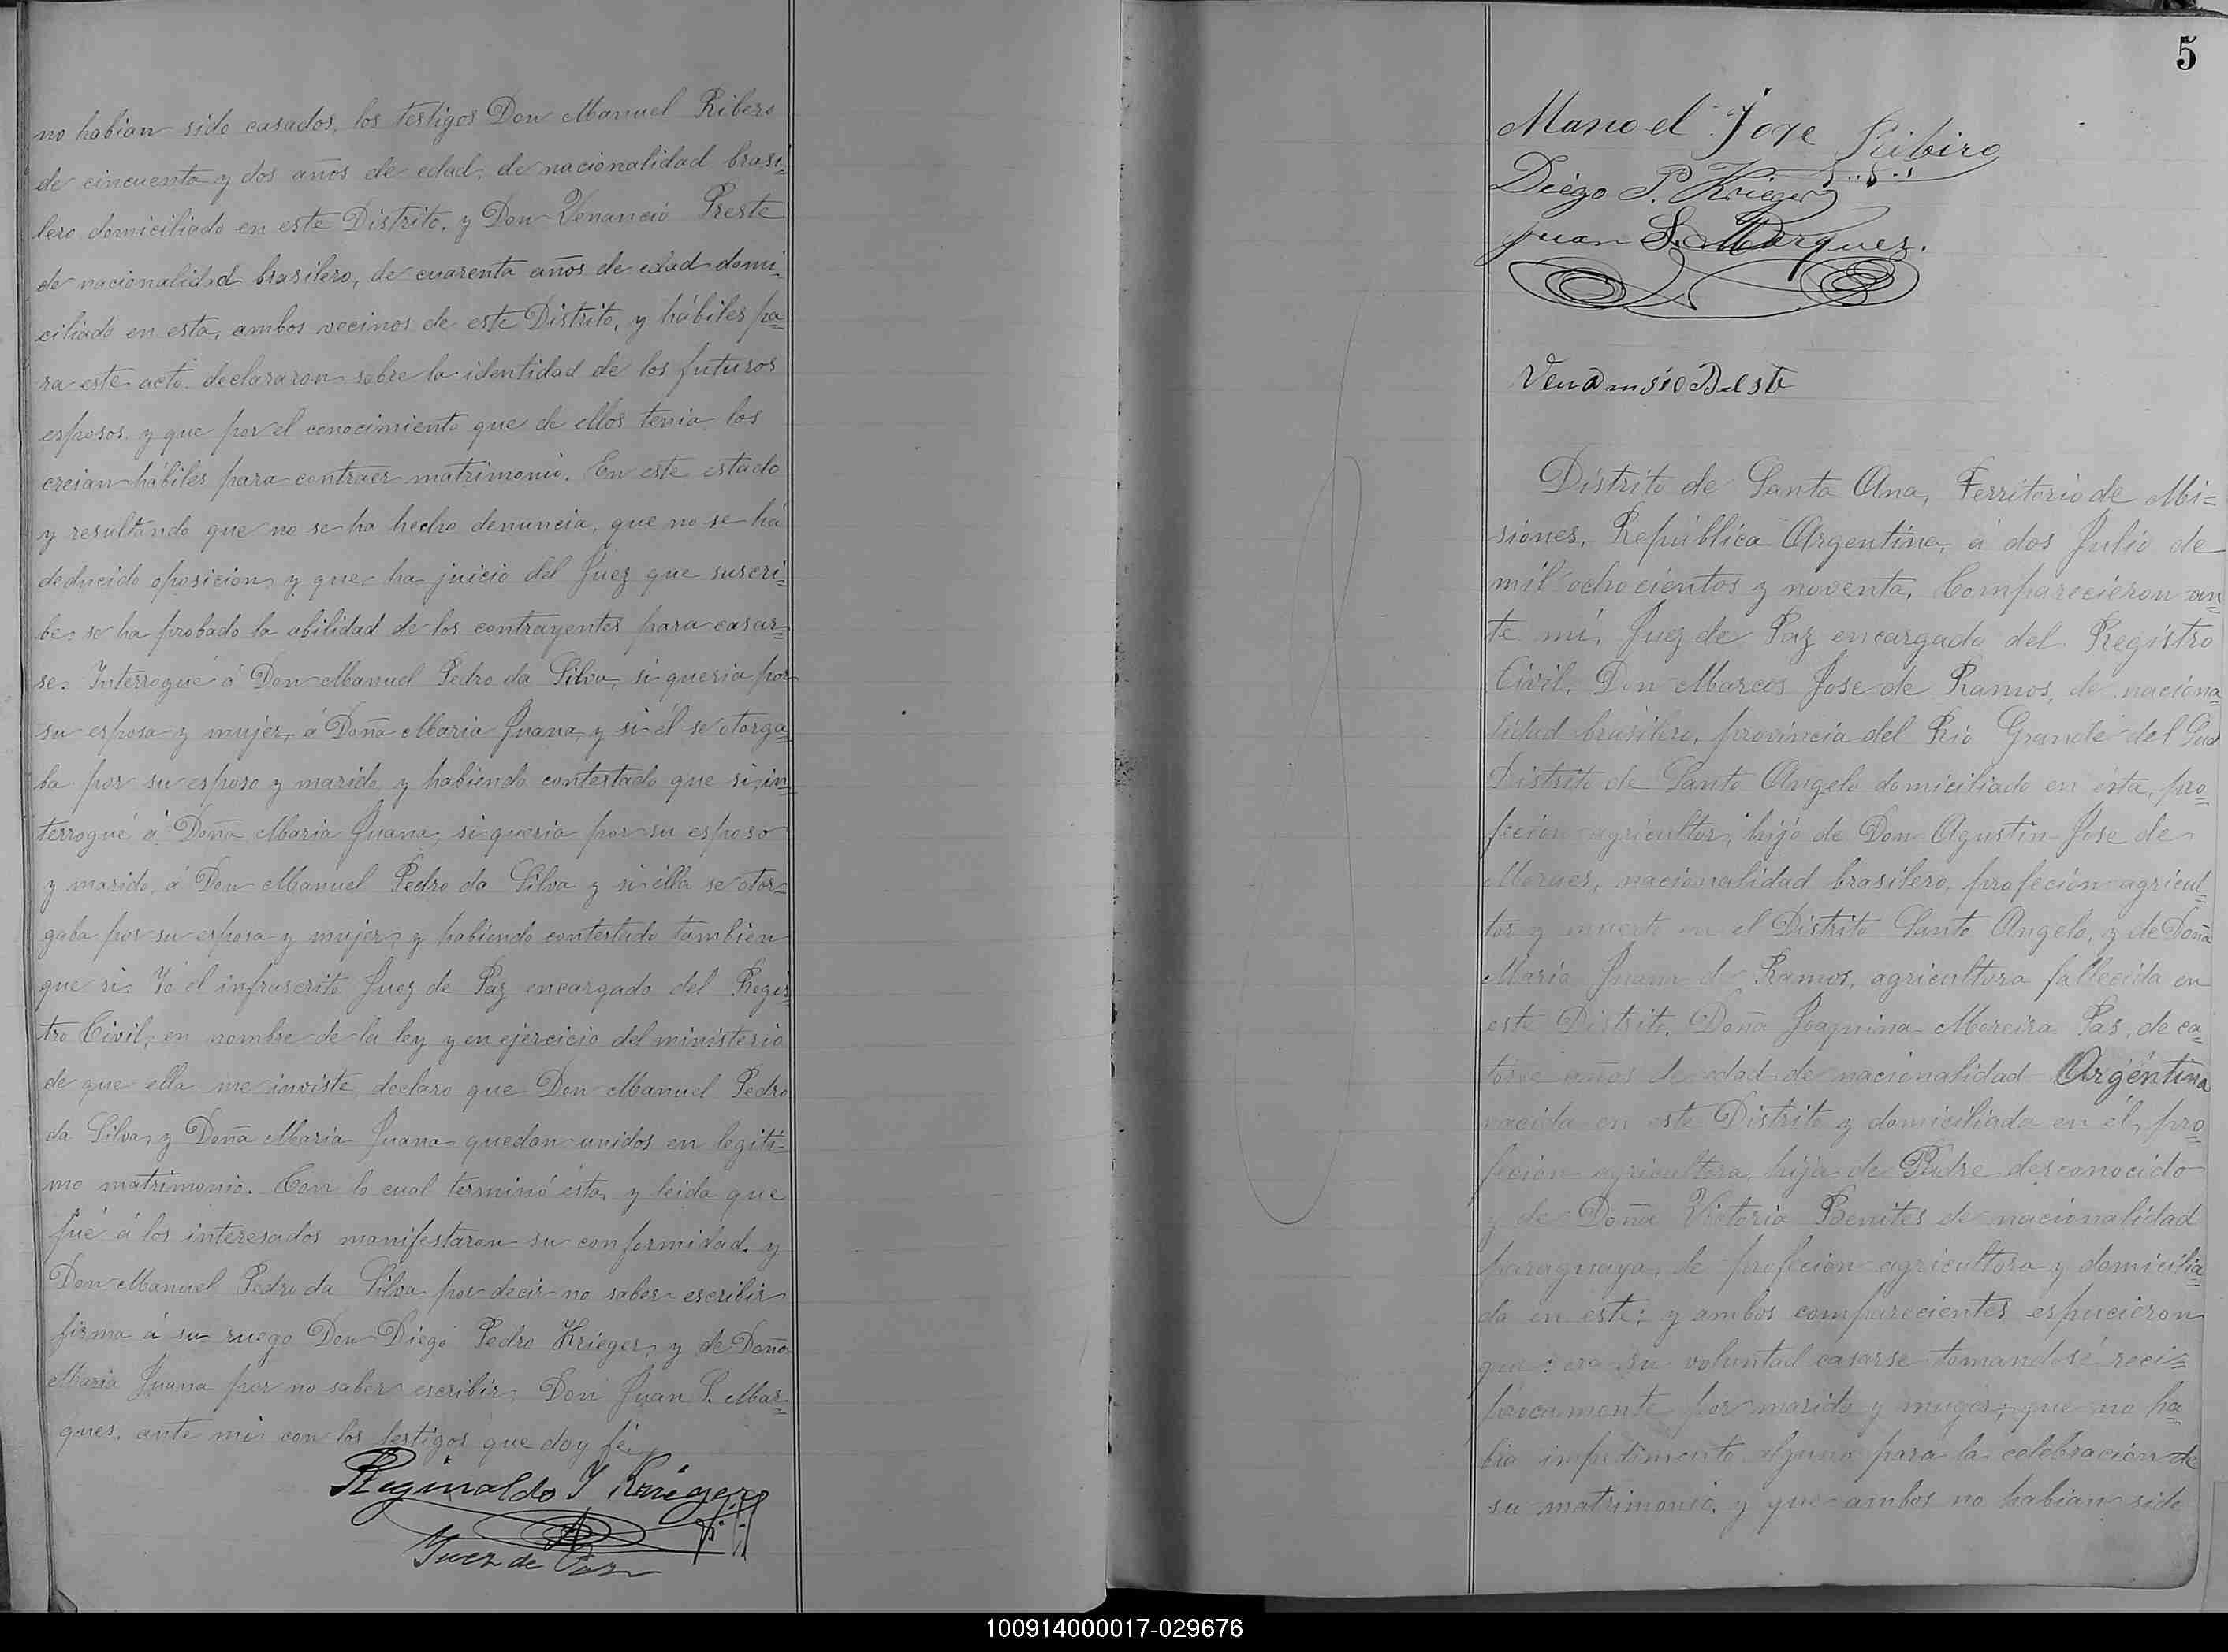 no habian sido casados, los testigos Don Manuel Ribero
de cincuenta y dos años de edad, de nacionalidad brasi-
lero domiciliado en este Distrito, y Don Venancio Preste
de nacionalidad brasilero, de cuarenta años de edad domi-
ciliado en esta, ambos vecinos de este Distrito, y hábiles pa-
ra este acto declararon sobre la identidad de los futuros
esposos, y que por el conocimiento que de ellos tenia los
creian hábiles para contraer matrimonio. En este estado
y resultando que no se ha hecho denuncia, que no se há
deducido oposicion, y que, ha juicio del Juez que suscri-
be, se ha probado la abilidad de los contrayentes para casar=
se. Interrogué á Don Manuel Pedro da Silva, si queria por
su esposa y mujer, á Doña Maria Juana, y si él se otorga=
ba por su esposo y marido, y habiendo contestado que si, in=
terrogué á Doña Maria Juana, si queria por su esposo
y marido, á Don Manuel Pedro da Silva y si élla se otor=
gaba por su esposa y mujer, y habiendo contestado tambien
que si. Yo el infrascrito Juez de Paz encargado del Regis
tro Civil, en nombre de la ley y en ejercicio del ministerio
de que ella me inviste, declaro que Don Manuel Pedro
da Silva, y Doña Maria Juana quedan unidos en legiti=
mo matrimonio. Con lo cual terminó ésta, y leida que
fué á los interesados manifestaron su conformidad. y
Don Manuel Pedro da Silva por decir no saber escribir
firma á su ruego Don Diego Pedro Krieger, y de Doña
Maria Juana por no saber escribir, Don Juan S. Mar=
ques. ante mi con los testigos que doy fé.
Reginaldo Y Krieger
Juez de Paz
5
Manoel Joze Ribiro
Diego P. Krieger
Juan S. Marquez.
Distrito de Santa Ana, Territorio de Mi=
siones, República Argentina, á dos Julio de
mil ochocientos y noventa. Comparecieron an=
te mi, Juez de Paz encargado del Registro
Civil, Don Marcos Jose de Ramos, de naciona=
lidad brasilero, provincia del Rio Grande del Sud
Distrito de Santo Angelo domiciliado en ésta, pro=
fecion agricultor, hijo de Don Agustin Jose de
Moraes, nacionalidad brasilero, profecion agricul=
tor y muerto en el Distrito Santo Angelo, y de Doña
Maria Juana de Ramos, agricultora fallecida en
este Distrito. Doña Joaquina Moreira Pas, de ca=
torce años de edad de nacionalidad Argentina
nacida en este Distrito y domiciliada en él, pro=
fecion agricultora, hija de Padre desconocido
y de Doña Victoria Benites de nacionalidad
paraguaya, de profecion agricultora y domicilia=
da en este; y ambos comparecientes espucieron
que: era su voluntad casarse tomandosé reci=
procamente por marido y muger, que no ha=
bia impedimento alguno para la celebracion de
su matrimonio, y que ambos no habian sido
100914000017-029676